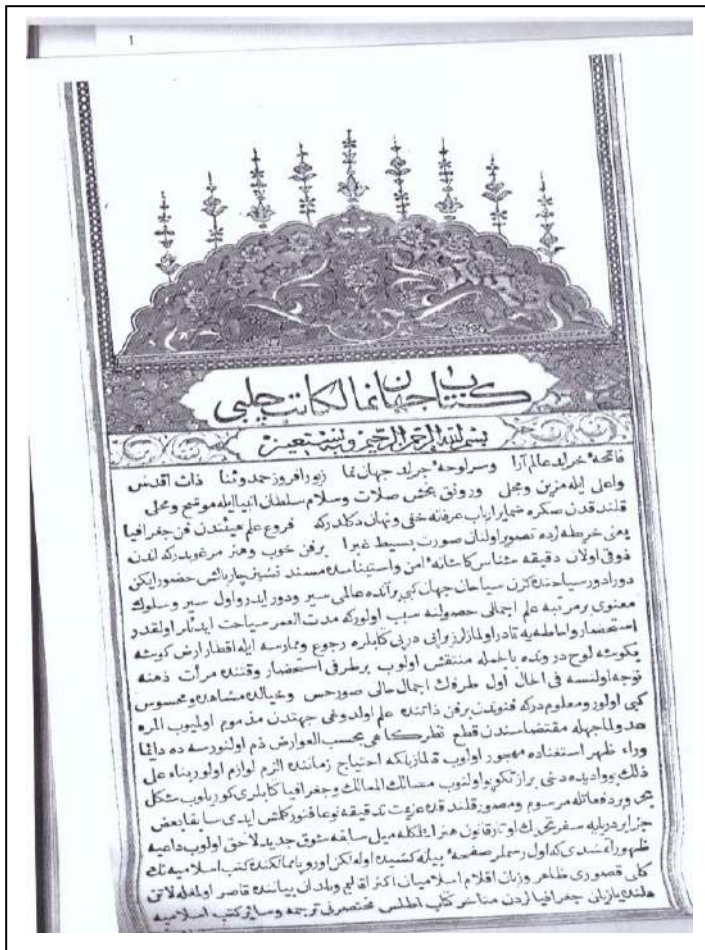 1
كتاب جهان نما لكاتب چلبی
بسم الله الرحمن الرحيم وبه نستعين
فاتحهٔ خراید عالم آرا وسرلوحهٔ جراید جهان نما زیور افروز حمد وثنا ذات اقدس
واعلی ایله مزین ومجلی ورونق بخش صلات وسلام سلطان انبیا ایله موشح ومحلی
قلندقدن صکره ضمایر ارباب عرفانه خفی ونهان دكلدركه فروع علم هیئتدن فن جغرافیا
یعنی خریطه ارزده تصویر اولنان صورت بسیط غبرا برفن خوب وهنر مرغوبدركه اندن
ذوقی اولان دقیقه شناس كاشانهٔ امن واستیناسده مسند نشین چاربالش حضور ایكن
دورادور سیاحتده كزن سیاحان جهان كبی برآنده عالمی سیر ودور ایدر واول سیر وسلوك
معنوی برمرتبه علم اجمالی حصولنه سبب اولوركه مدت العمر سیاحت ایدنلر اولقدر
استحضار واحاطه یه قادر اولمازلر زیرا بی در پی كتابلره رجوع وممارسه ایله اقطار ارض كوشه
بكوشه لوح درونده باجمله منتقش اولوب برطرفی استحضار وقتنده مرآت ذهنه
توجه اولنسه فی الحال اول طرفك اجمال حالی صور حس وخیالده مشاهده ومحسوس
كبی اولور ومعلومدركه فنوندن برفن ذاتنده علم اولدوغی جهتدن مذموم اولیوب المرء
عدو لما جهله مقتضاسندن قطع نظر كاهی بحسب العوارض ذم اولنورسه ده دائما
وراء ظهر استغناده مهجور اولوب قلماز بلكه احتیاج زماننده الزم لوازم اولور بناء علی
ذلك بو وادیده دخی براز تكاپو اولنوب مسالك الممالك وجغرافیا كتابلری كوریلوب شكل
یحی وبردفعاتله مرسوم ومصور قلندقده عزیمت تدقیقه نوعا فتور كلمش ایدی سابقا بعض
جزایر دریایه سفر تحریك اوتار قانون هنر ایتمكله میل سابقه شوق جدید لاحق اولوب داعیه
ظهور ایتدی كه اول رسملر صفحهٔ بیله كشیده اوله لكن اوروپا ممالكنده كتب اسلامیه نك
كلی قصوری ظاهر وزبان اقلام اسلامیان اكثر اقالیم وبلدان بیاننده قاصر اولمغله لاتن
یازیلان جغرافیالردن متاخر كتاب اطلس مختصرنی ترجمه وسایر كتب اسلامیه